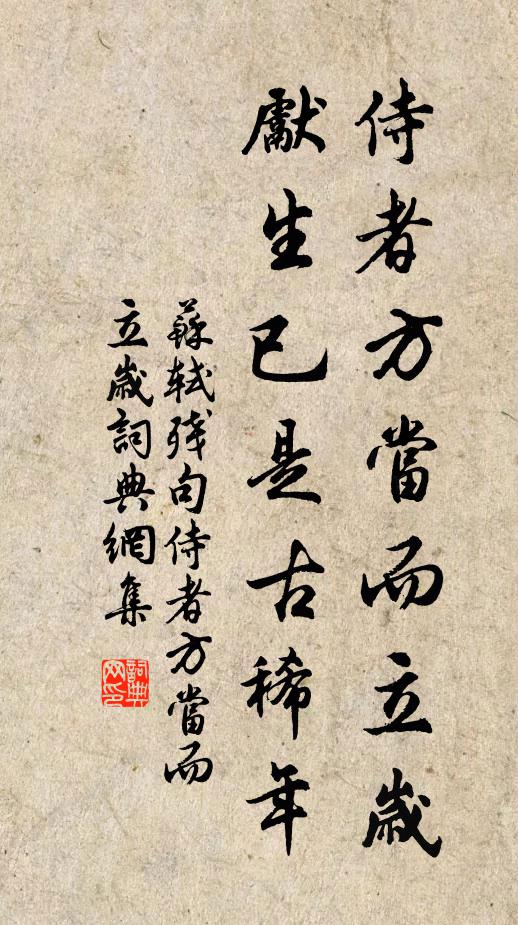 侍者方當而立歲
獻生已是古稀年
蘇軾残句侍者方當而
立歲詞典網集
詞典网印